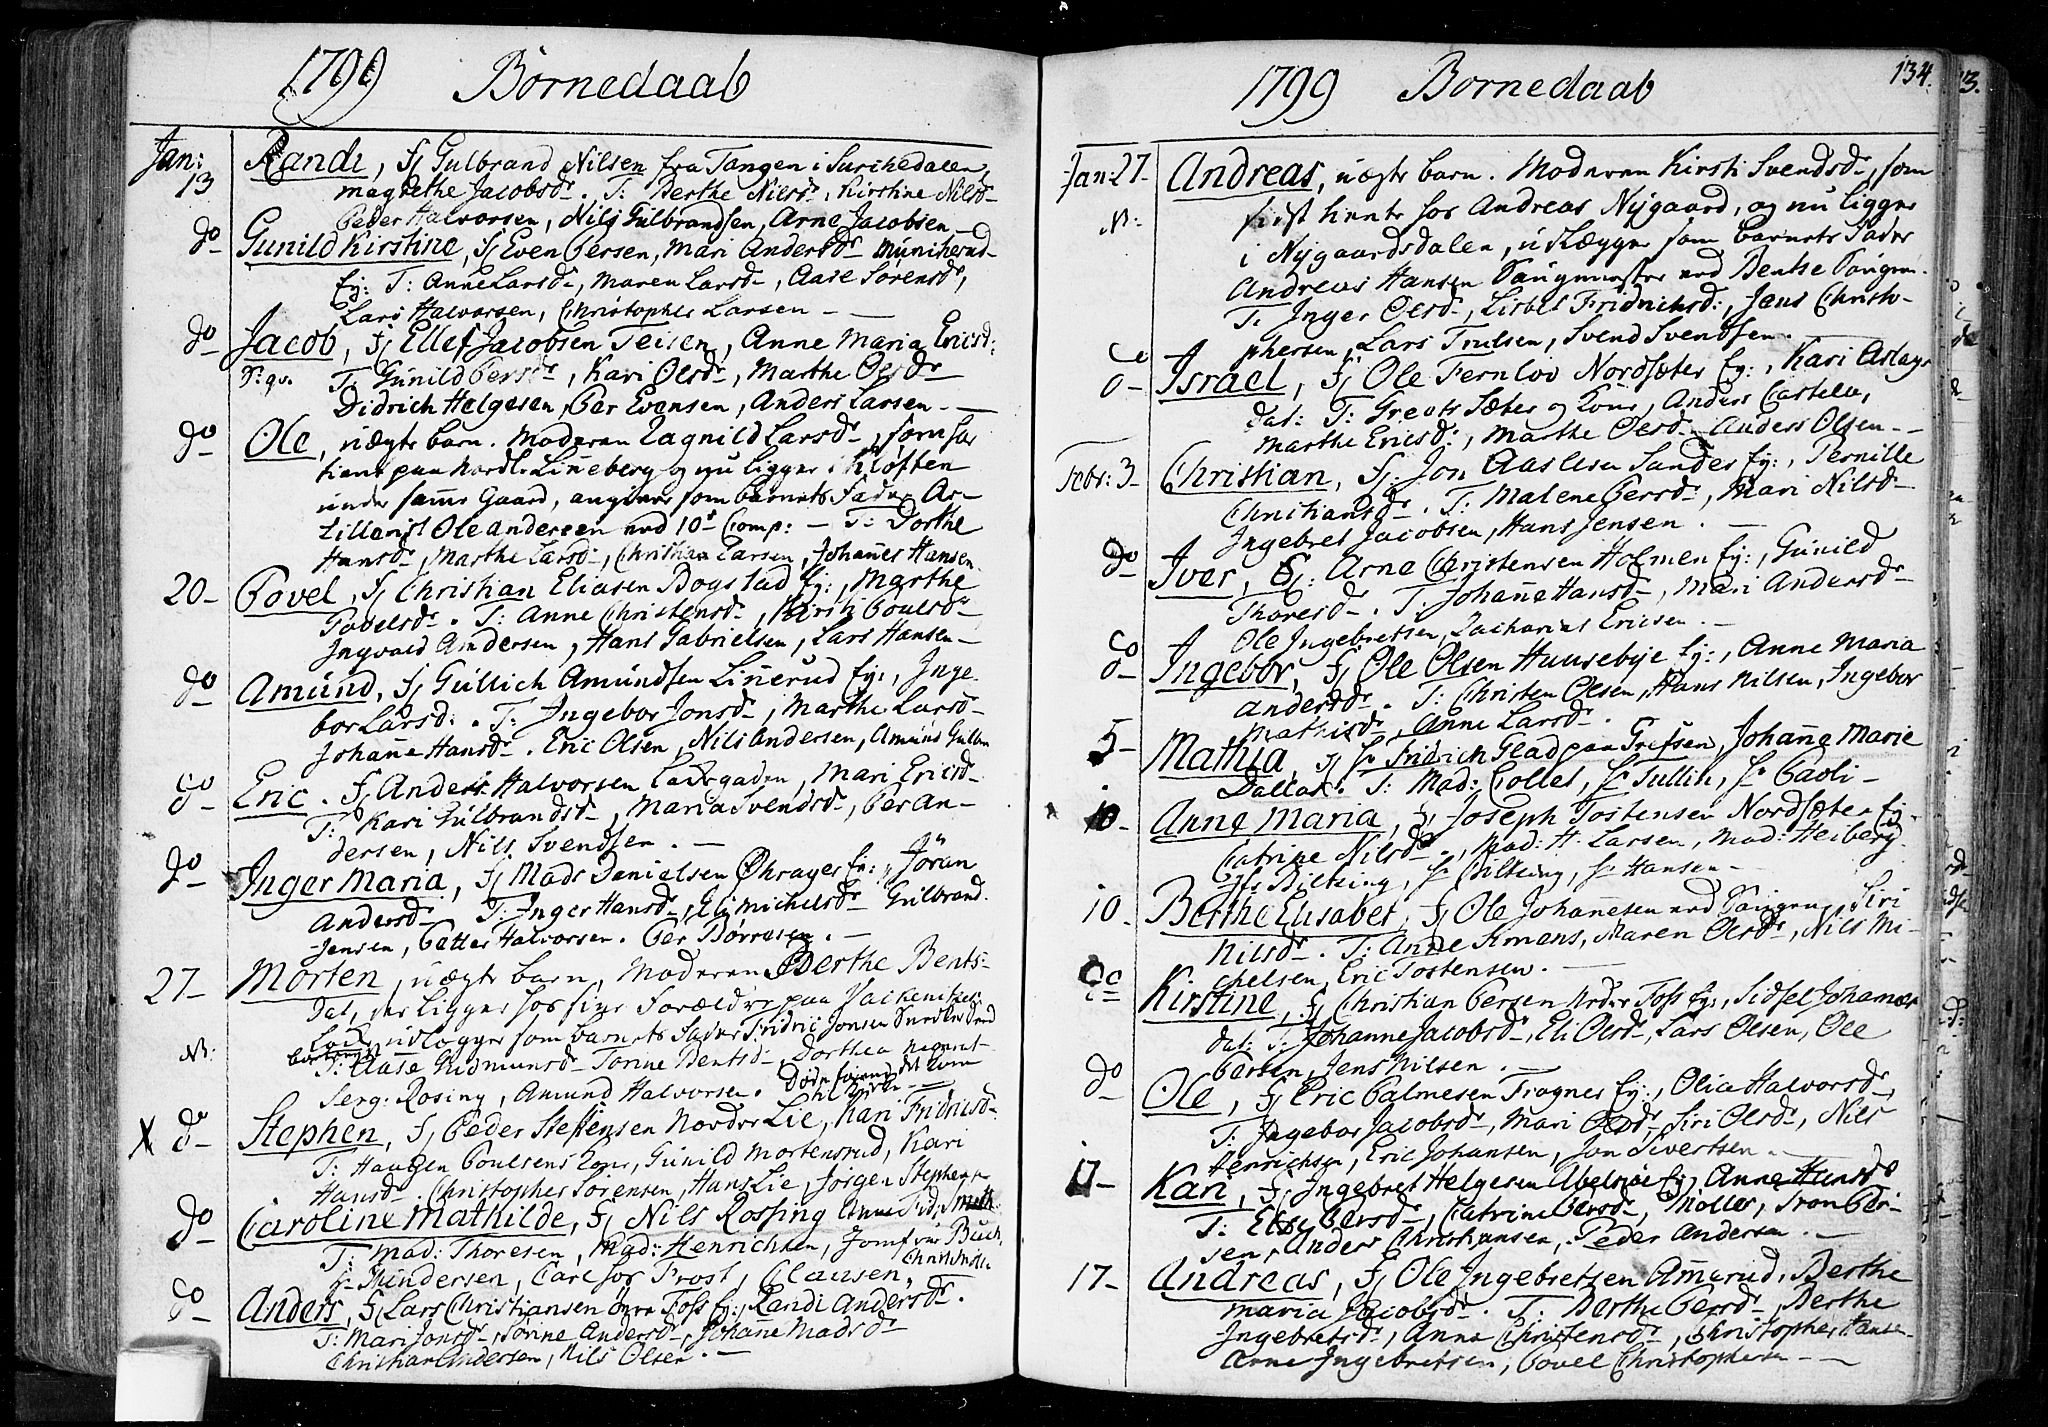 1799 Børnedaab
Jan: 13
Randi, f/ Gulbrand Nilsen fra Tangen i Surchedalen,
Magrethe Jacobsd. T: Berthe Nilsd, Kirstine Nilsd
Peder Halvorsen, Nils Gulbrandsen, Arne Jacobsen
do Gunild Kirstine, f/ Even Persen, Mari Andersd
Ey: T: Anne Larsd, Maren Larsd, Aase Sørensd,
Lars Halvorsen, Christopher Larsen
do Jacob, f/ Ellef Jacobsen Teisen, Anne Maria Ericsd:
T: Gunild Persd, Kari Olsd, Marthe Olsd
Didrich Helgesen, Per Evensen, Anders Larsen
do Ole, uægte barn. Moderen Ragnild Larsd, som har
tient paa Nordre Lineberg og nu ligger i Kløften
under samme Gaard, angiver som barnets Fader Ar-
tillerist Ole Andersen ved 10de Comp: T: Dorthe
Hansd, Marthe Larsd, Christian Larsen, Johanes Hansen
20 Povel, f/ Christian Eliasen Bogstad Ey:, Marthe
Povelsd. T: Anne Christensd, Kirsti Poulsd
Ingvald Andersen, Hans Gabrielsen, Lars Hansen
do Amund, f/ Gullich Amundsen Linerud Ey:, Inge-
bor Larsd: T: Ingebor Jonsd, Marthe Larsd
Johane Hansd. Eric Olsen, Nils Andersen, Amund Gulbr
do Eric. f/ Anders Halvorsen, Mari Ericsd
T: Kari Gulbrandsd, Maria Svendsd, Per An-
dersen, Nils Svendsen.
do Inger Maria, f/ Mads Danielsen Ey:, Jöran
Andersd T: Inger Hansd, Eli Michelsd Gulbrand
Jensen, Petter Halvorsen. Per Børresen.
27 Morten, uægte barn, Moderen Berthe Bents-
dat, der ligger hos sine Forældre paa
NB: udlægger som barnets Fader Fridric Jonsen
T: Aase Gudmunsd Torine Bentsd, Dorthea
Serg: Rosing, Amund Halvorsen.
X do Stephen, f/ Peder Steffensen Nordre Lie, Kari Fridricsd
T: Haagen Poulsens Kone, Gunild Mortensrud, Kari
Hansd. Christopher Sørensen, Hans Lie, Jørgen Stephens
do Caroline Mathilde, f/ Nils Rossing
T: Mad: Thoresen, Mad: Henrichsen, Jomfrue Buch,
Hr Gundersen, Carl Frost, Clausen,
do Anders, f/ Lars Christiansen øvre Foss Ey:, Randi Andersd.
T: Mari Jonsd, Sørine Andersd, Johane Madsd
Christian Andersen, Nils Olsen.
1799 Børnedaab 134.
Jan: 27 Andreas, uægte barn. Moderen Kirsti Svendsd, som
NB: sidst tiente hos Andreas Nygaard, og nu ligger
i Nygaardsdalen, udlægger som barnets Fader
Andreas Hansen Saugmester ved Bentse Saugen.
T: Inger Olsd, Lisbet Fridrichsd:, Jens Christo-
phersen, Lars Trulsen, Svend Svendsen.
do Israel, f/ Ole Fernlov Nordsæter Ey:, Kari Aslags
dat: T: Greots Sæter og Kone, Anders Castelu,
Marthe Ericsd:, Marthe Olsd Anders Olsen
Febr: 3 Christian, f/: Jon Aaslesen Sander Ey:, Pernille
Christiansd. T: Malene Persd, Mari Nilsd
Ingebret Jacobsen, Hans Jensen.
do Iver, f/: Arne Christensen Holmen Ey:, Gunild
Thoresd. T: Johane Hansd, Mari Andersd
Ole Ingebretsen, Zacharias Ericsen.
do Ingebor, f/ Ole Olsen Huusebye Ey:, Anne Maria
Andersd. T: Christen Olsen, Hans Nilsen, Ingebor
Mathisd, Anne Larsd.
5 Mathia, f/ Hr Fridrich Glad paa Grefsen, Johane Marie
Dallas. T: Mad: Collet, Hr Tullin, Hr Paoli
10 Anne Maria, f/ Joseph Tostensen Nordsæter Ey:
Catrine Nilsd. Mad: H. Larsen, Mad: Heiberg.
Jfr Biltzing, Hr Biltzing, Hr Hansen
10 Berthe Elisabet, f/ Ole Johanesen ved Saugene, Siri
Nilsd. T: Anne Simens, Maren Olsd, Nils Mi-
chelsen, Eric Tostensen.
do Kirstine, f/ Christian Persen Nedre Foss Ey:, Sidsel Johanes
dat: T: Johanne Jacobsd, Eli Olsd, Lars Olsen, Ole
Persen, Jens Nilsen.
do Ole, f/ Eric Palmesen Frogner Ey:, Olia Halvorsd,
T: Ingebor Jacobsd, Mari Olsd, Siri Olsd, Nils
Henrichsen, Eric Johansen, Jon Sivertsen
17 Kari, f/ Ingebret Helgesen Abelsøe Ey, Anne Hansd
T: Else Persd, Catrine Persd, Møller, Iron Per-
sen, Anders Christiansen, Peder Andersen.
17 Andreas, f/ Ole Ingebretsen Amerud, Berthe
Maria Jacobsd. T: Berthe Persd, Berthe
Ingebretsd, Anne Christensd, Christopher Hanse
Arne Ingebretsen, Povel Christophersen